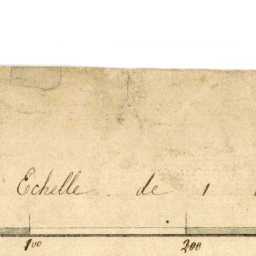 Echelle de 1
100 200